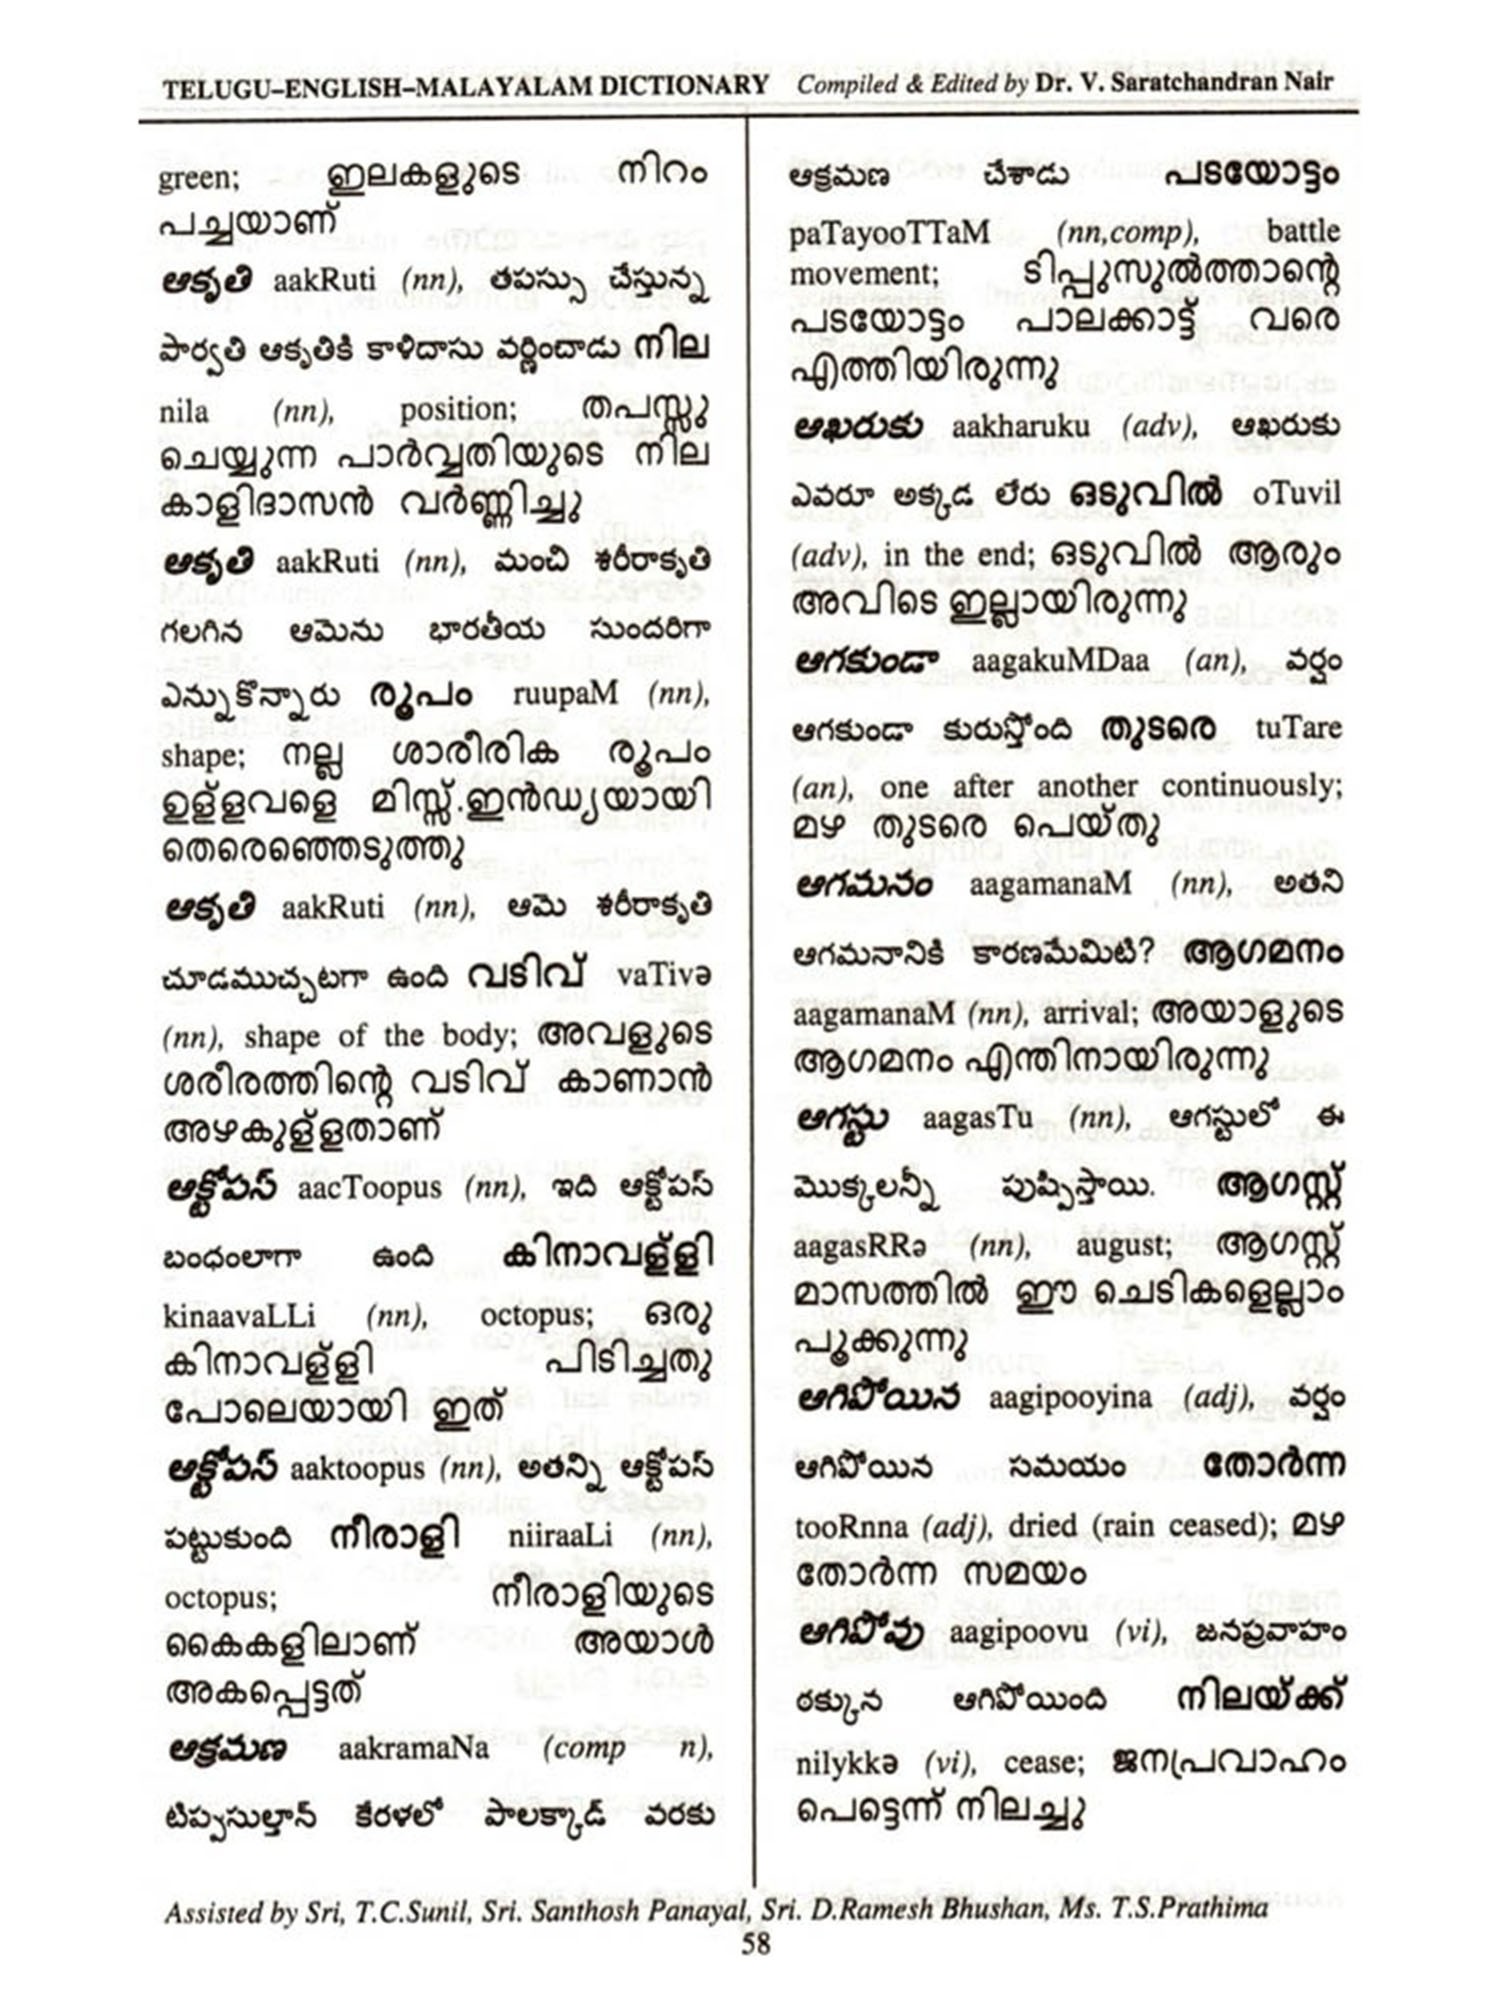 TELUGU–ENGLISH–MALAYALAM DICTIONARY Compiled & Edited by Dr. V. Saratchandran Nair
green; ഇലകളുടെ നിറം
പച്ചയാണ്
ఆకృతి aakRuti (nn), తపస్సు చేస్తున్న
పార్వతి ఆకృతికి కాళిదాసు వర్ణించాడు നില
nila (nn), position; തപസ്സു
ചെയ്യുന്ന പാർവ്വതിയുടെ നില
കാളിദാസൻ വർണ്ണിച്ചു
ఆకృతి aakRuti (nn), మంచి శరీరాకృతి
గలగిన ఆమెను భారతీయ సుందరిగా
ఎన్నుకొన్నారు രൂപം ruupaM (nn),
shape; നല്ല ശാരീരിക രൂപം
ഉള്ളവളെ മിസ്സ്.ഇൻഡ്യയായി
തെരെഞ്ഞെടുത്തു
ఆకృతి aakRuti (nn), ఆమె శరీరాకృతి
చూడముచ్చటగా ఉంది വടിവ് vaTivə
(nn), shape of the body; അവളുടെ
ശരീരത്തിന്റെ വടിവ് കാണാൻ
അഴകുള്ളതാണ്
ఆక్టోపస్ aacToopus (nn), ఇది ఆక్టోపస్
బంధంలాగా ఉంది കിനാവള്ളി
kinaavaLLi (nn), octopus; ഒരു
കിനാവള്ളി പിടിച്ചതു
പോലെയായി ഇത്
ఆక్టోపస్ aaktoopus (nn), అతన్ని ఆక్టోపస్
పట్టుకుంది നീരാളി niiraaLi (nn),
octopus; നീരാളിയുടെ
കൈകളിലാണ് അയാൾ
അകപ്പെട്ടത്
ఆక్రమణ aakramaNa (comp n),
టిప్పుసుల్తాన్ కేరళలో పాలక్కాడ్ వరకు
ఆక్రమణ చేశాడు പടയോട്ടം
paTayooTTaM (nn,comp), battle
movement; ടിപ്പുസുൽത്താന്റെ
പടയോട്ടം പാലക്കാട്ട് വരെ
എത്തിയിരുന്നു
ఆఖరుకు aakharuku (adv), ఆఖరుకు
ఎవరూ అక్కడ లేరు ഒടുവിൽ oTuvil
(adv), in the end; ഒടുവിൽ ആരും
അവിടെ ഇല്ലായിരുന്നു
ఆగకుండా aagakuMDaa (an), వర్షం
ఆగకుండా కురుస్తోంది തുടരെ tuTare
(an), one after another continuously;
മഴ തുടരെ പെയ്തു
ఆగమనం aagamanaM (nn), అతని
ఆగమనానికి కారణమేమిటి? ആഗമനം
aagamanaM (nn), arrival; അയാളുടെ
ആഗമനം എന്തിനായിരുന്നു
ఆగస్టు aagasTu (nn), ఆగస్టులో ఈ
మొక్కలన్నీ పుష్పిస్తాయి. ആഗസ്റ്റ്
aagasRRə (nn), august; ആഗസ്റ്റ്
മാസത്തിൽ ഈ ചെടികളെല്ലാം
പൂക്കുന്നു
ఆగిపోయిన aagipooyina (adj), వర్షం
ఆగిపోయిన సమయం തോർന്ന
tooRnna (adj), dried (rain ceased); മഴ
തോർന്ന സമയം
ఆగిపోవు aagipoovu (vi), జనప్రవాహం
ఠక్కున ఆగిపోయింది നിലയ്ക്ക്
nilykkə (vi), cease; ജനപ്രവാഹം
പെട്ടെന്ന് നിലച്ചു
Assisted by Sri, T.C.Sunil, Sri. Santhosh Panayal, Sri. D.Ramesh Bhushan, Ms. T.S.Prathima
58